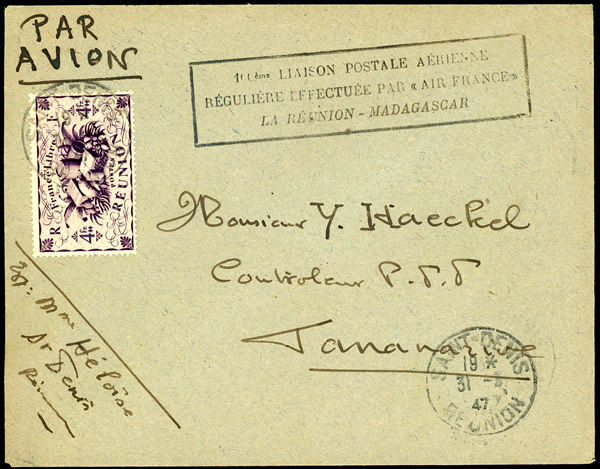 PAR
AVION
100ème LIAISON POSTALE AÉRIENNE
RÉGULIÈRE EFFECTUÉE PAR « AIR FRANCE »
LA RÉUNION - MADAGASCAR
R F
France Libre
4F 4F
POSTES
RÉUNION
Monsieur Y. Haeckel
Controleur P.T.T
Tananarive
Exp: Mme Héloïse
St Denis
Réunion
SAINT-DENIS
19 *
31
47
RÉUNION